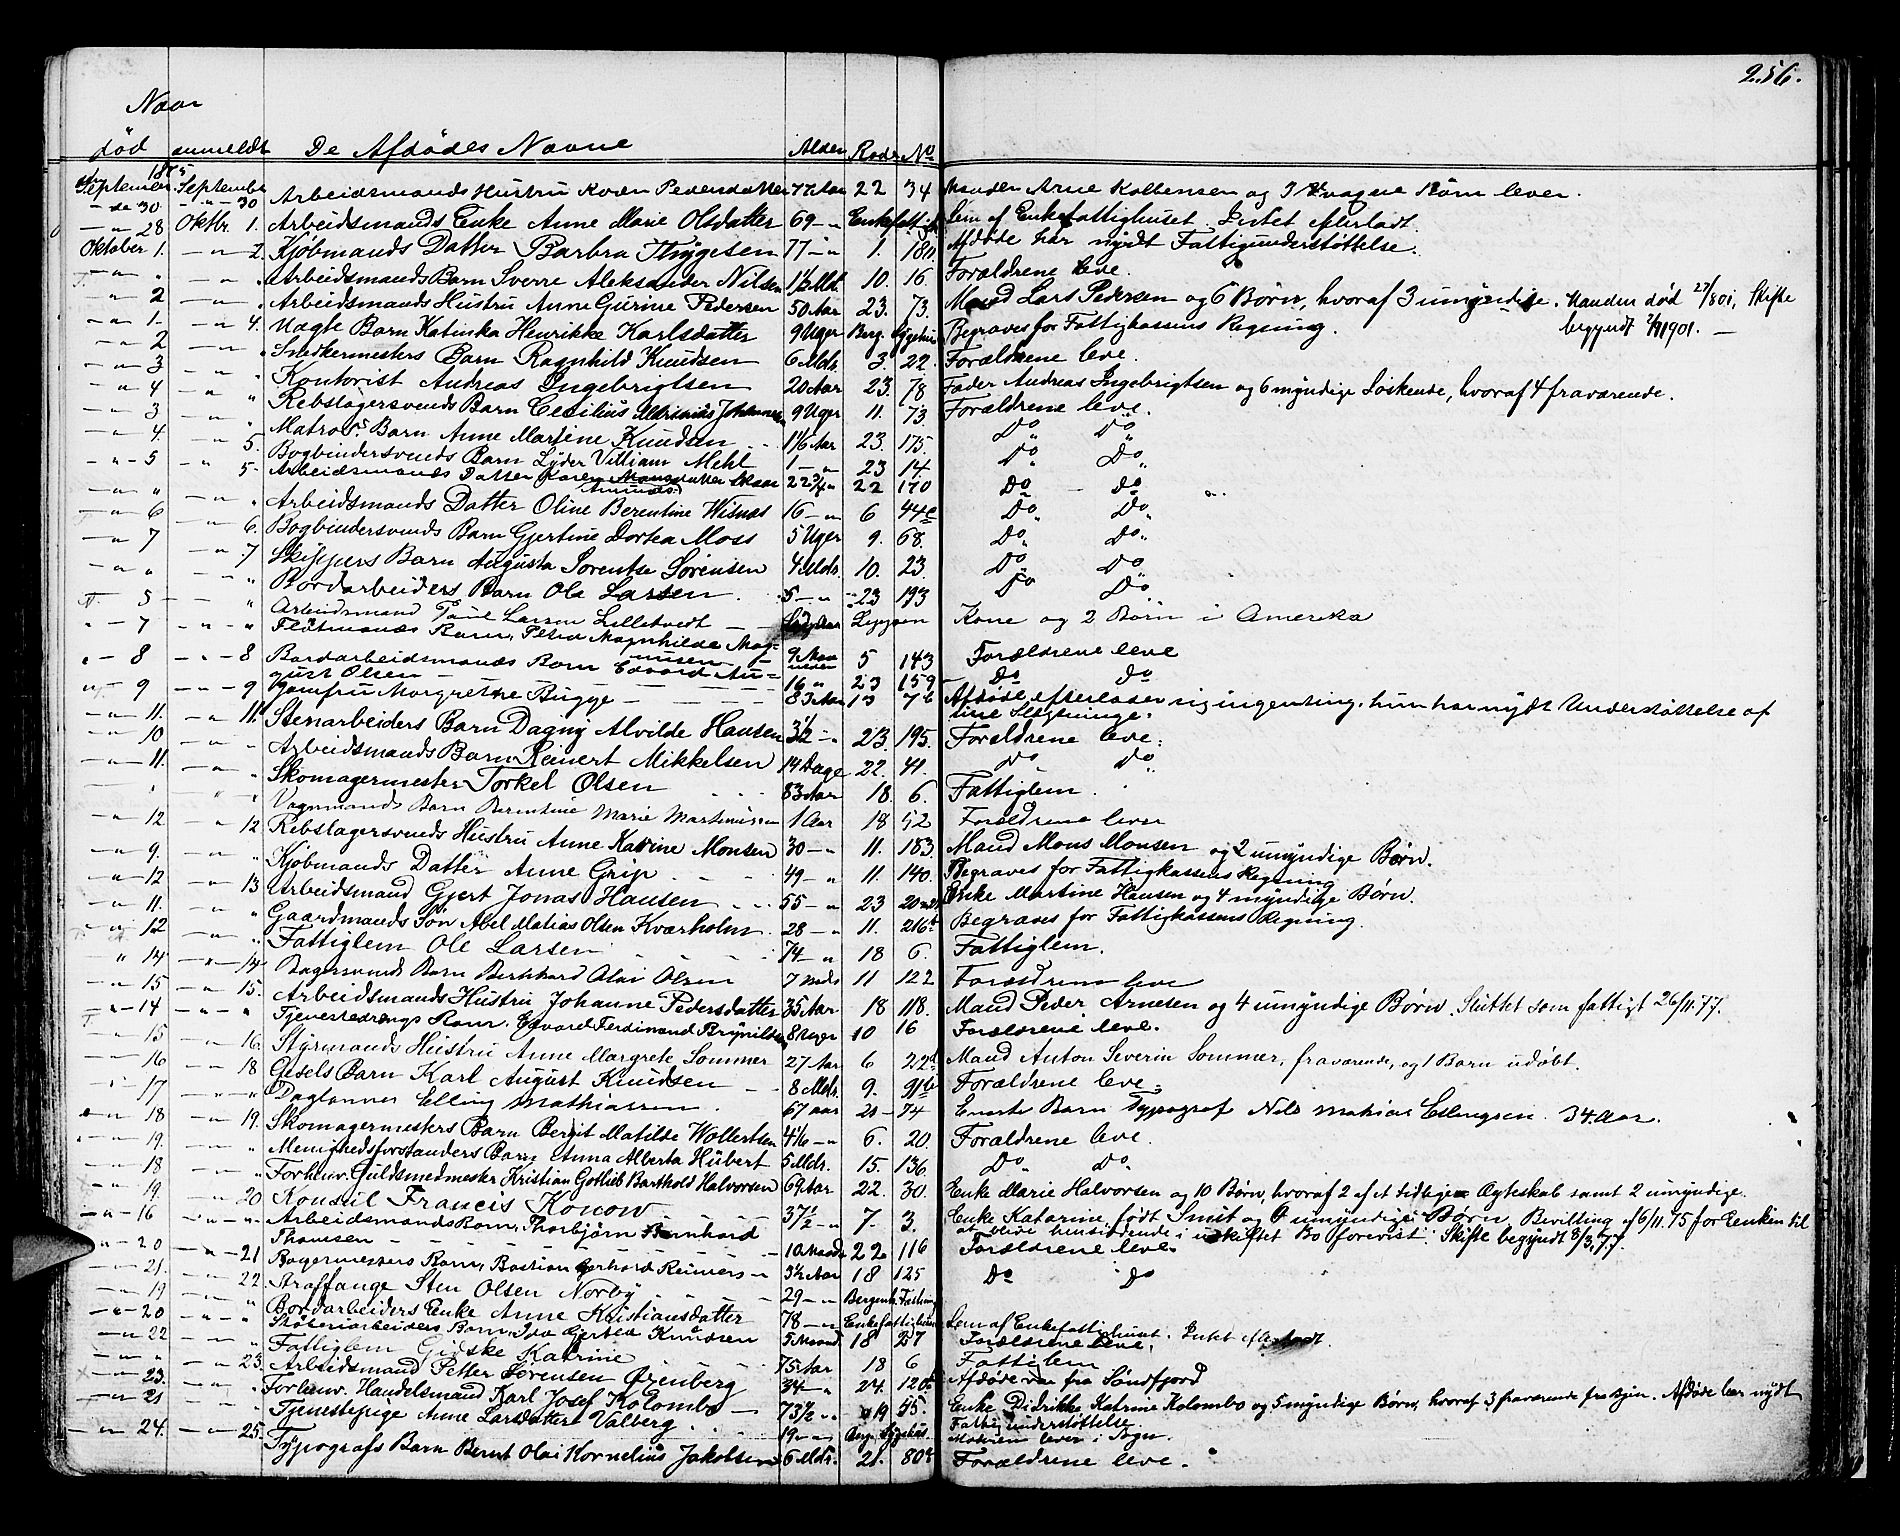 256.
Naar
død anmeldt De Afdødes Navne Alder Rode No
1875
September September Arbeidsmands Hustru Pedersdatter 77 Aar 22 34 Manden Arne og 3 Børn lever.
- de 30 - " - 30
- " 28 Oktbr. 1. Arbeidsmands Enke Anne Marie Olsdatter 69 - " Lem af Enkefattighuset. Intet efterladt.
Oktober 1. - " - 2. Kjøbmands Datter Barbra Thygesen 77 - " 1. Afdøde har nydt Fattigunderstøttelse.
- " " - " - " Arbeidsmands Barn Sverre Aleksander Nilsen 1½ Mdr. 10. 16. Forældrene leve.
- " 2 - " - " Arbeidsmands Hustru Anne Gurine Pedersen 50 Aar 23. 73. Mand Lars Pedersen og 6 Børn, hvoraf 3 umyndige. Manden død 27/8 01, Skifte
begyndt 1901. -
- " 1. - " 4. Uægte Barn Katinka Henrikke Karlsdatter 9 Uger Berg. Sygehus Begraves for Fattigkassens Regning.
- " 2 - " - " Snedkermesters Barn Ragnhild Knudsen 6 Mdr. 3. 22. Forældrene leve.
- " 3 - " " Kontorist Andreas Ingebrigtsen 20 Aar 23. 78 Fader Andreas Ingebrigtsen og 6 myndige Søskende, hvoraf 4 fraværende.
- " 4 - " " Rebslagersvends Barn Cecilius Johannesen 9 Uger 11. 73. Forældrene leve.
- " 3 - " " Matros. Barn Anne Martine Knudsen 1 1/6 Aar 23. 175. Do Do
- " 4. - " 5. Bogbindersvends Barn Lyder Villiam Mehl 1 - " 23 14. Do Do
- " - 5 - " 5- Arbeidsmands Datter Karen 22¾ " 22 170 Do - do
- " " - " " Arbeidsmands Datter Oline Berentine Wisnæs 16 - " 6 44c Do Do
- " 6 - " 6. Bogbindersvends Barn Gjertine Dortea Moss 5 Uger 9. 68. Do Do
- " 7 - " 7 Skippers Barn Augusta Sorentse Sørensen 4 Mdr. 10. 23. Do Do
- " " - " " Bordarbeiders Barn Ole Larsen. 5 - " 23 193 Do Do
- 5 - - " Arbeidsmand Paul Larsen Lilletvedt Kone og 2 Børn i Amerika
- 7 - " - " Flotmands Barn, Petra Magnhilde Mag-
nusen 9 Maaneder 5 143 Forældrene leve
- 8 - " - 8 Bordarbeidsmands Barn Edvard Au-
gust Olsen 16 " 23 159 Do do
" - 9 - " - 9 Jomfru Margrethe Bugge 83 Aar 13 7b Afdøde efterlader sig ingenting, hun har nydt Understøttelse af
sine Slægtninge.
- " 11. - " 11. Stenarbeiders Barn Dagny Alvilde Hansen 3½ - " 23. 195. Forældrene leve.
- " 10 - " " Arbeidsmands Barn Reinert Mikkelsen 14 Dage 22. 41. Do Do
- " 11. - " " Skomagermester Torkel Olsen 83 Aar 18. 6. Fattiglem.
" " " Vognmands Barn Berentine Marie Martinussen 1 Aar 18 52 Forældrene lever
- " 12 - " 12 Rebslagersvends Hustru Anne Katrine Monsen 30 - " 11. 183. Mand Mons Monsen og 2 umyndige Børn.
- " 9. - " " Kjøbmands Datter Anne Grip 49 - " 11. 140. Begraves for Fattigkassens Regning
- " 12 - " 13 Arbeidsmand Gjert Jonas Hansen 55 - " 23 Enke Martine Hansen og 4 myndige Børn.
- " 11. - " " Gaardmands Søn Abel Matias Olsen Kværholm 28 - " 11. 216b Begraves for Fattigkassens Regning.
- " 12 - " " Fattiglem Ole Larsen 74 - " 18 6. Fattiglem.
" 14 - " - 14 Bagersvends Barn Bernhard Olai Olsen 7 Mdr 11 122 Forældrene leve
- " 15 - " 15. Arbeidsmands Hustru Johanne Pedersdatter 35 Aar 18 118. Mand Peder Arnesen og 4 umyndige Børn. Sluttet som fattigt 26/11.77.
- " - 14 - " - " Tjenestedrengs Barn, Edvard Ferdinand Brynildsen 8 Uger 10 16 Forældrene leve.
- " 15 - " 16. Styrmands Hustru Anne Margrete Sommer 27 Aar 6 22d Mand Anton Severin Sommer, fraværende, og 1 Barn udøbt.
- " 16 - " 18 Gesels Barn Karl August Knudsen 8 Mdr. 9. 91b Forældrene leve.
" 17 - " - " Daglønner Elling Mathiassen 67 aar 21 - 74 Eneste Barn Typograf Nils Mathias Ellingsen. 34. Aar.
- " 18 - " 19. Skomagermesters Barn Bergit Matilde Wollertsen 4 1/6 - " 6. 20. Forældrene leve.
- " 19. - " " Menighedsforstanders Barn Anna Alberta Hübert 5 Mdr. 15. 136. Do Do
- " 18 - " " Forhenv. Guldsmedmester Kristian Gotlieb Barthold Halvorsen 69 Aar 22. 30. Enke Marie Halvorsen og 10 Børn, hvoraf 2 af et tidligere Ægteskab samt 2 umyndige.
- " 19. - " 20 Konsul Francis Konow 37½ - " 7. 3. Enke Katarine født Smit og umyndige Børn. Bevilling af 6/11.75 for Enken til
at blive hensiddende i uskiftet Bo forevist. Skifte begyndt 8/3.77.
- " - 16 - " - " Arbeidsmands Barn, Thorbjørn Bernhard
Thomsen 10 Maander 22 116 Forældrene leve.
- " - 20 - " - 21 Bagermesters Barn, Bastian Gerhard Reimers 3½ Aar 18 125 Do Do
- " 21. - " 22. Straffange Sten Olsen Norby 29 - " Bergenh. Fæstning
- " 19 - " " Bordarbeiders Enke Anne Kristiansdatter 78 - " Enkefattighuset Lem af Enkefattighuset. Intet efterladt.
- " - 20 - " - " Støberiarbeiders Barn, Ida Knudsen 5 Maand 18 27 Forældrene leve.
- " 22 - " " Fattiglem Gidske Katrine 75 Aar 18 6 Fattiglem
- " " - " 23. Arbeidsmand Petter Sørensen Ørenberg 34 - " 24. 120b Afdøde var fra Søndfjord
- " 23. - " " Forhenv. Handelsmand Karl Josef Kolombo 73½ - " 19 55. Enke Didrikke Katrine Kolombo og 5 myndige Børn, hvoraf 3 fraværende fra Byen. Afdøde har nydt
Fattigunderstøttelse.
- " 21 - " " Tjenestepige Anne Larsdatter Valberg 19 - " Berg. Sygehus. Moderen lever i Sogn.
- " 24. - " 25. Typografs Barn Bernt Olai Kornelius Jakobsen 6 Mdr. 21. 80b Forældrene leve.